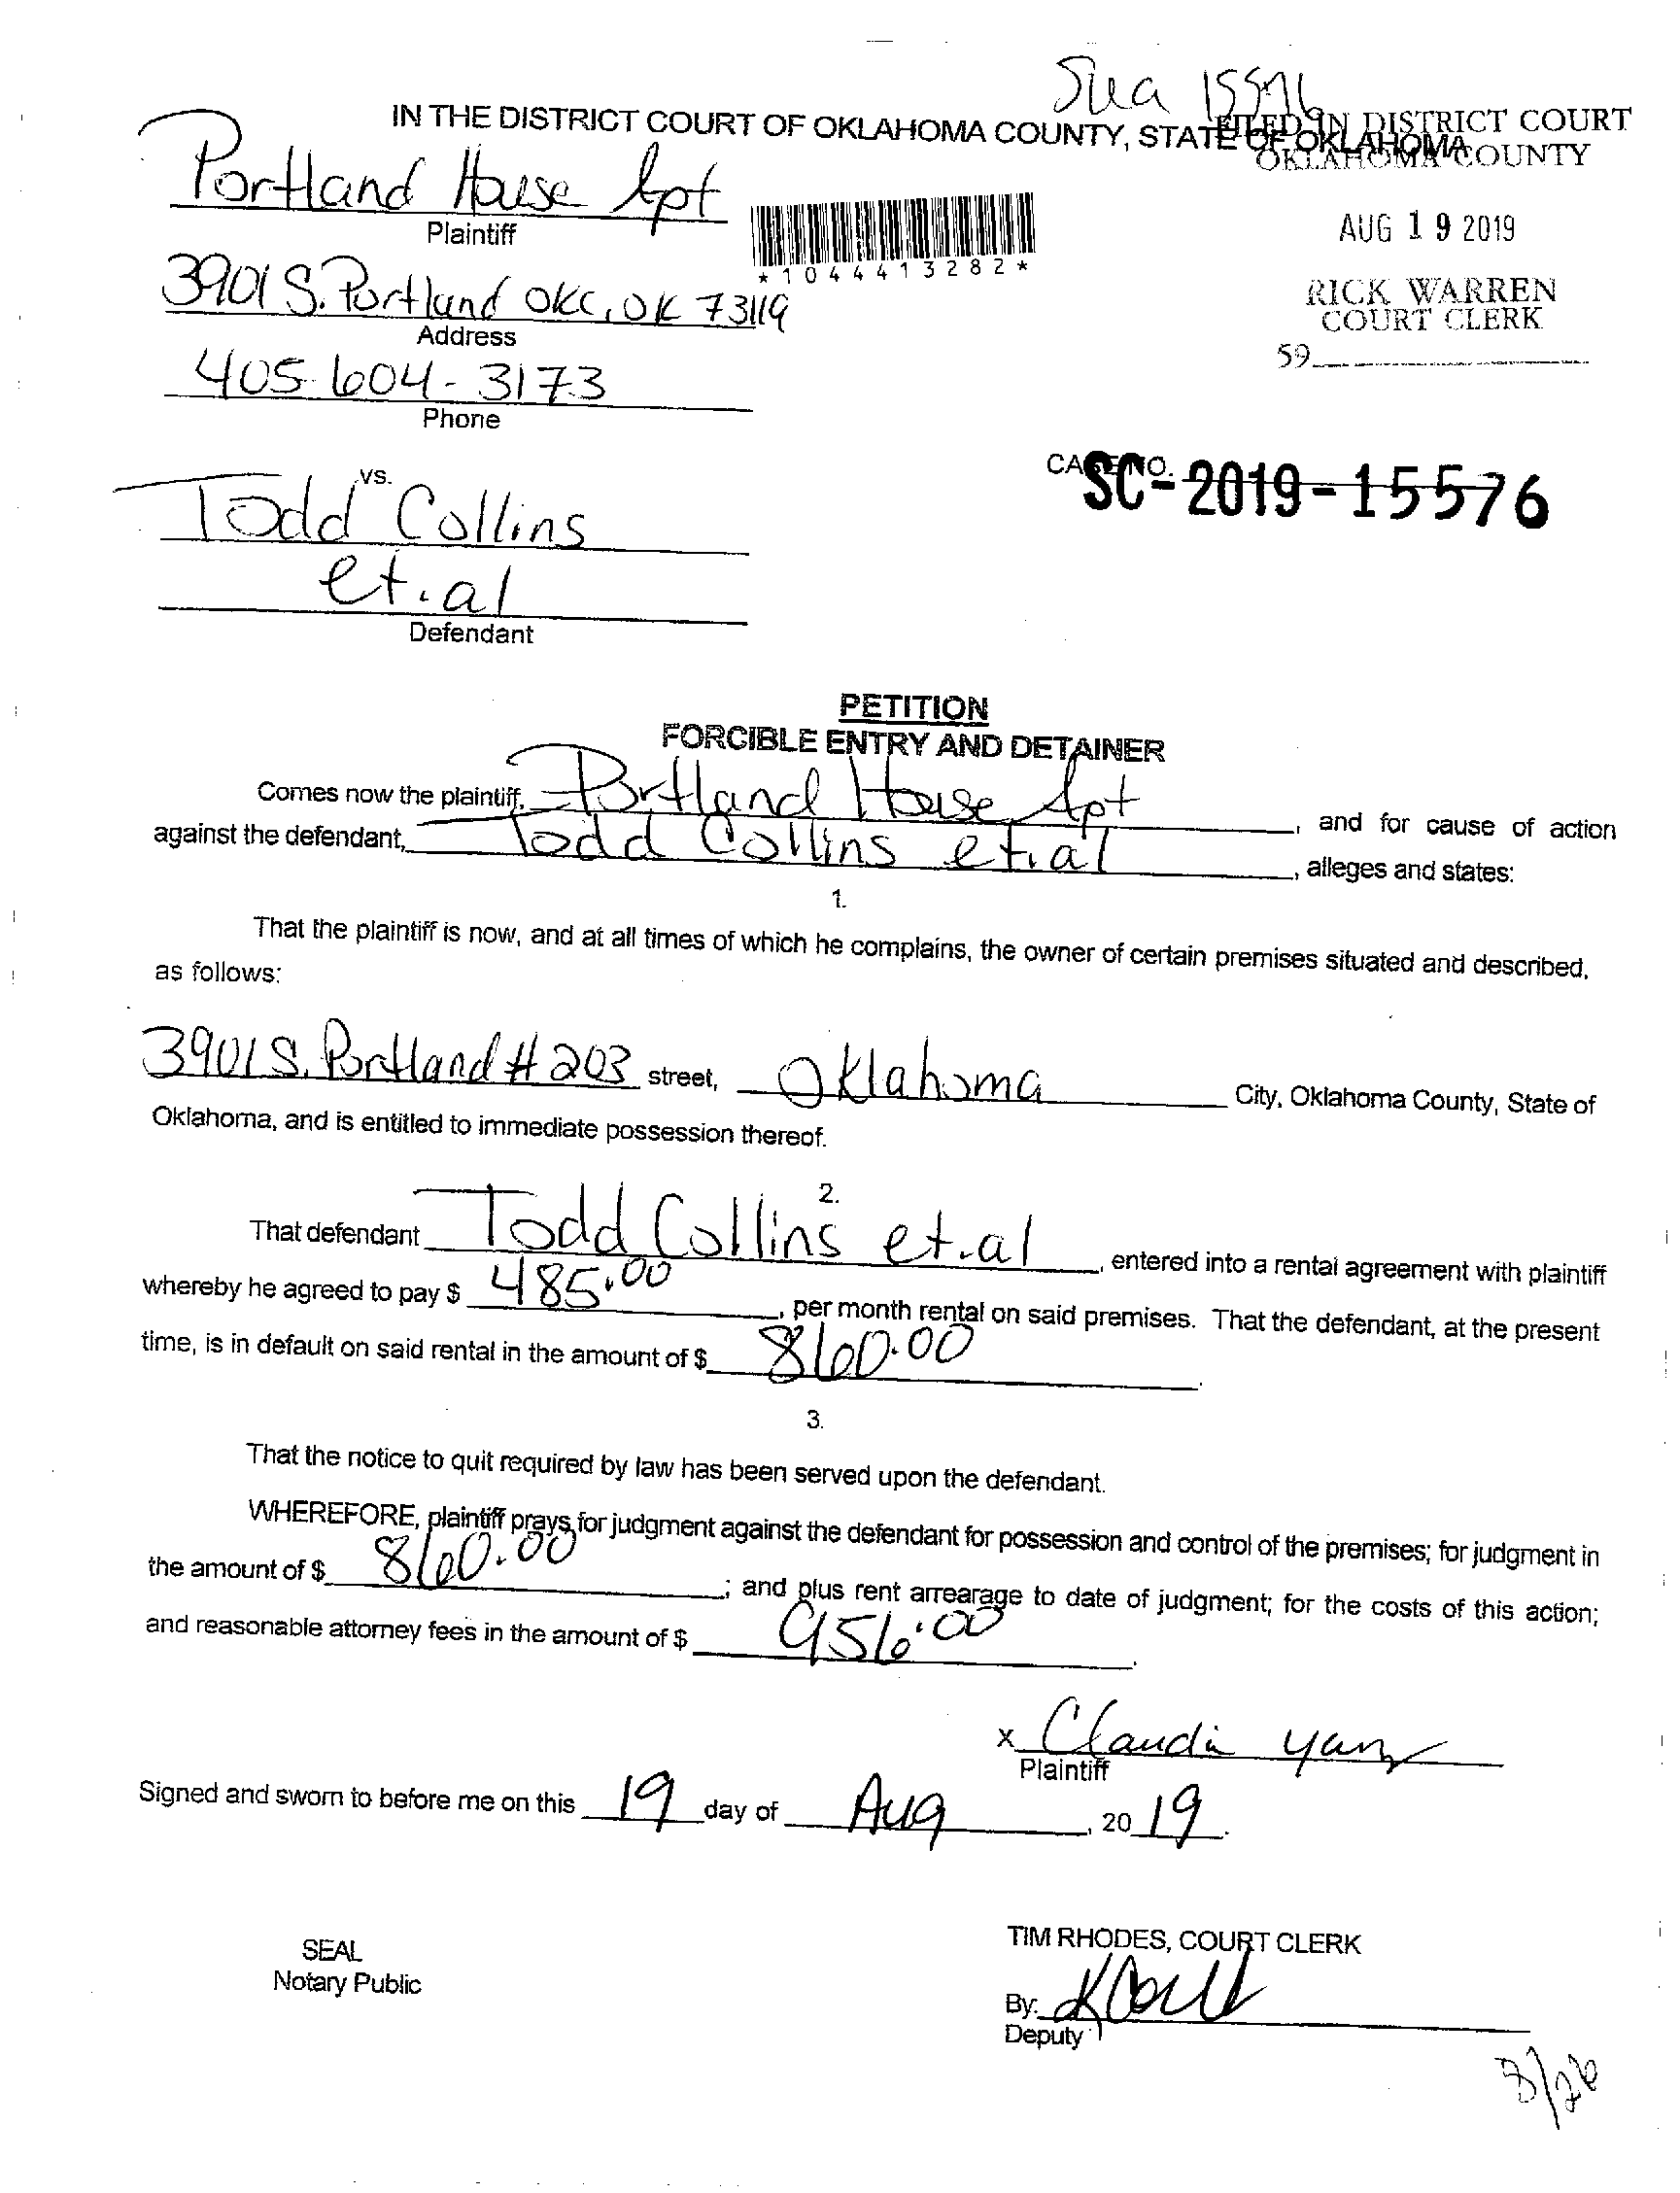 15576
IN THE DISTRICT COURT OF OKLAHOMA COUNTY, STATE OF OKLAHOMA
FILED IN DISTRICT COURT
OKLAHOMA COUNTY
Portland House Apt
Plaintiff
*1044413282*
AUG 19 2019
3901 S. Portland OKC, OK 73119
Address
RICK WARREN
COURT CLERK
59
405-604-3173
Phone
CASE NO. SC-2019-15576
vs.
Todd Collins
et.al
Defendant
PETITION
FORCIBLE ENTRY AND DETAINER
Comes now the plaintiff, Portland House Apt, and for cause of action
against the defendant, Todd Collins et.al, alleges and states:
1.
That the plaintiff is now, and at all times of which he complains, the owner of certain premises situated and described,
as follows:
3901 S. Portland # 203 street, Oklahoma City, Oklahoma County, State of
Oklahoma, and is entitled to immediate possession thereof.
2.
That defendant Todd Collins et.al, entered into a rental agreement with plaintiff
whereby he agreed to pay $ 485.00, per month rental on said premises. That the defendant, at the present
time, is in default on said rental in the amount of $ 860.00.
3.
That the notice to quit required by law has been served upon the defendant.
WHEREFORE, plaintiff prays for judgment against the defendant for possession and control of the premises; for judgment in
the amount of $ 860.00; and plus rent arrearage to date of judgment; for the costs of this action;
and reasonable attorney fees in the amount of $ 956.00.
x Claudia
Plaintiff
Signed and sworn to before me on this 19 day of Aug, 2019.
SEAL
Notary Public
TIM RHODES, COURT CLERK
By:
Deputy
8/26